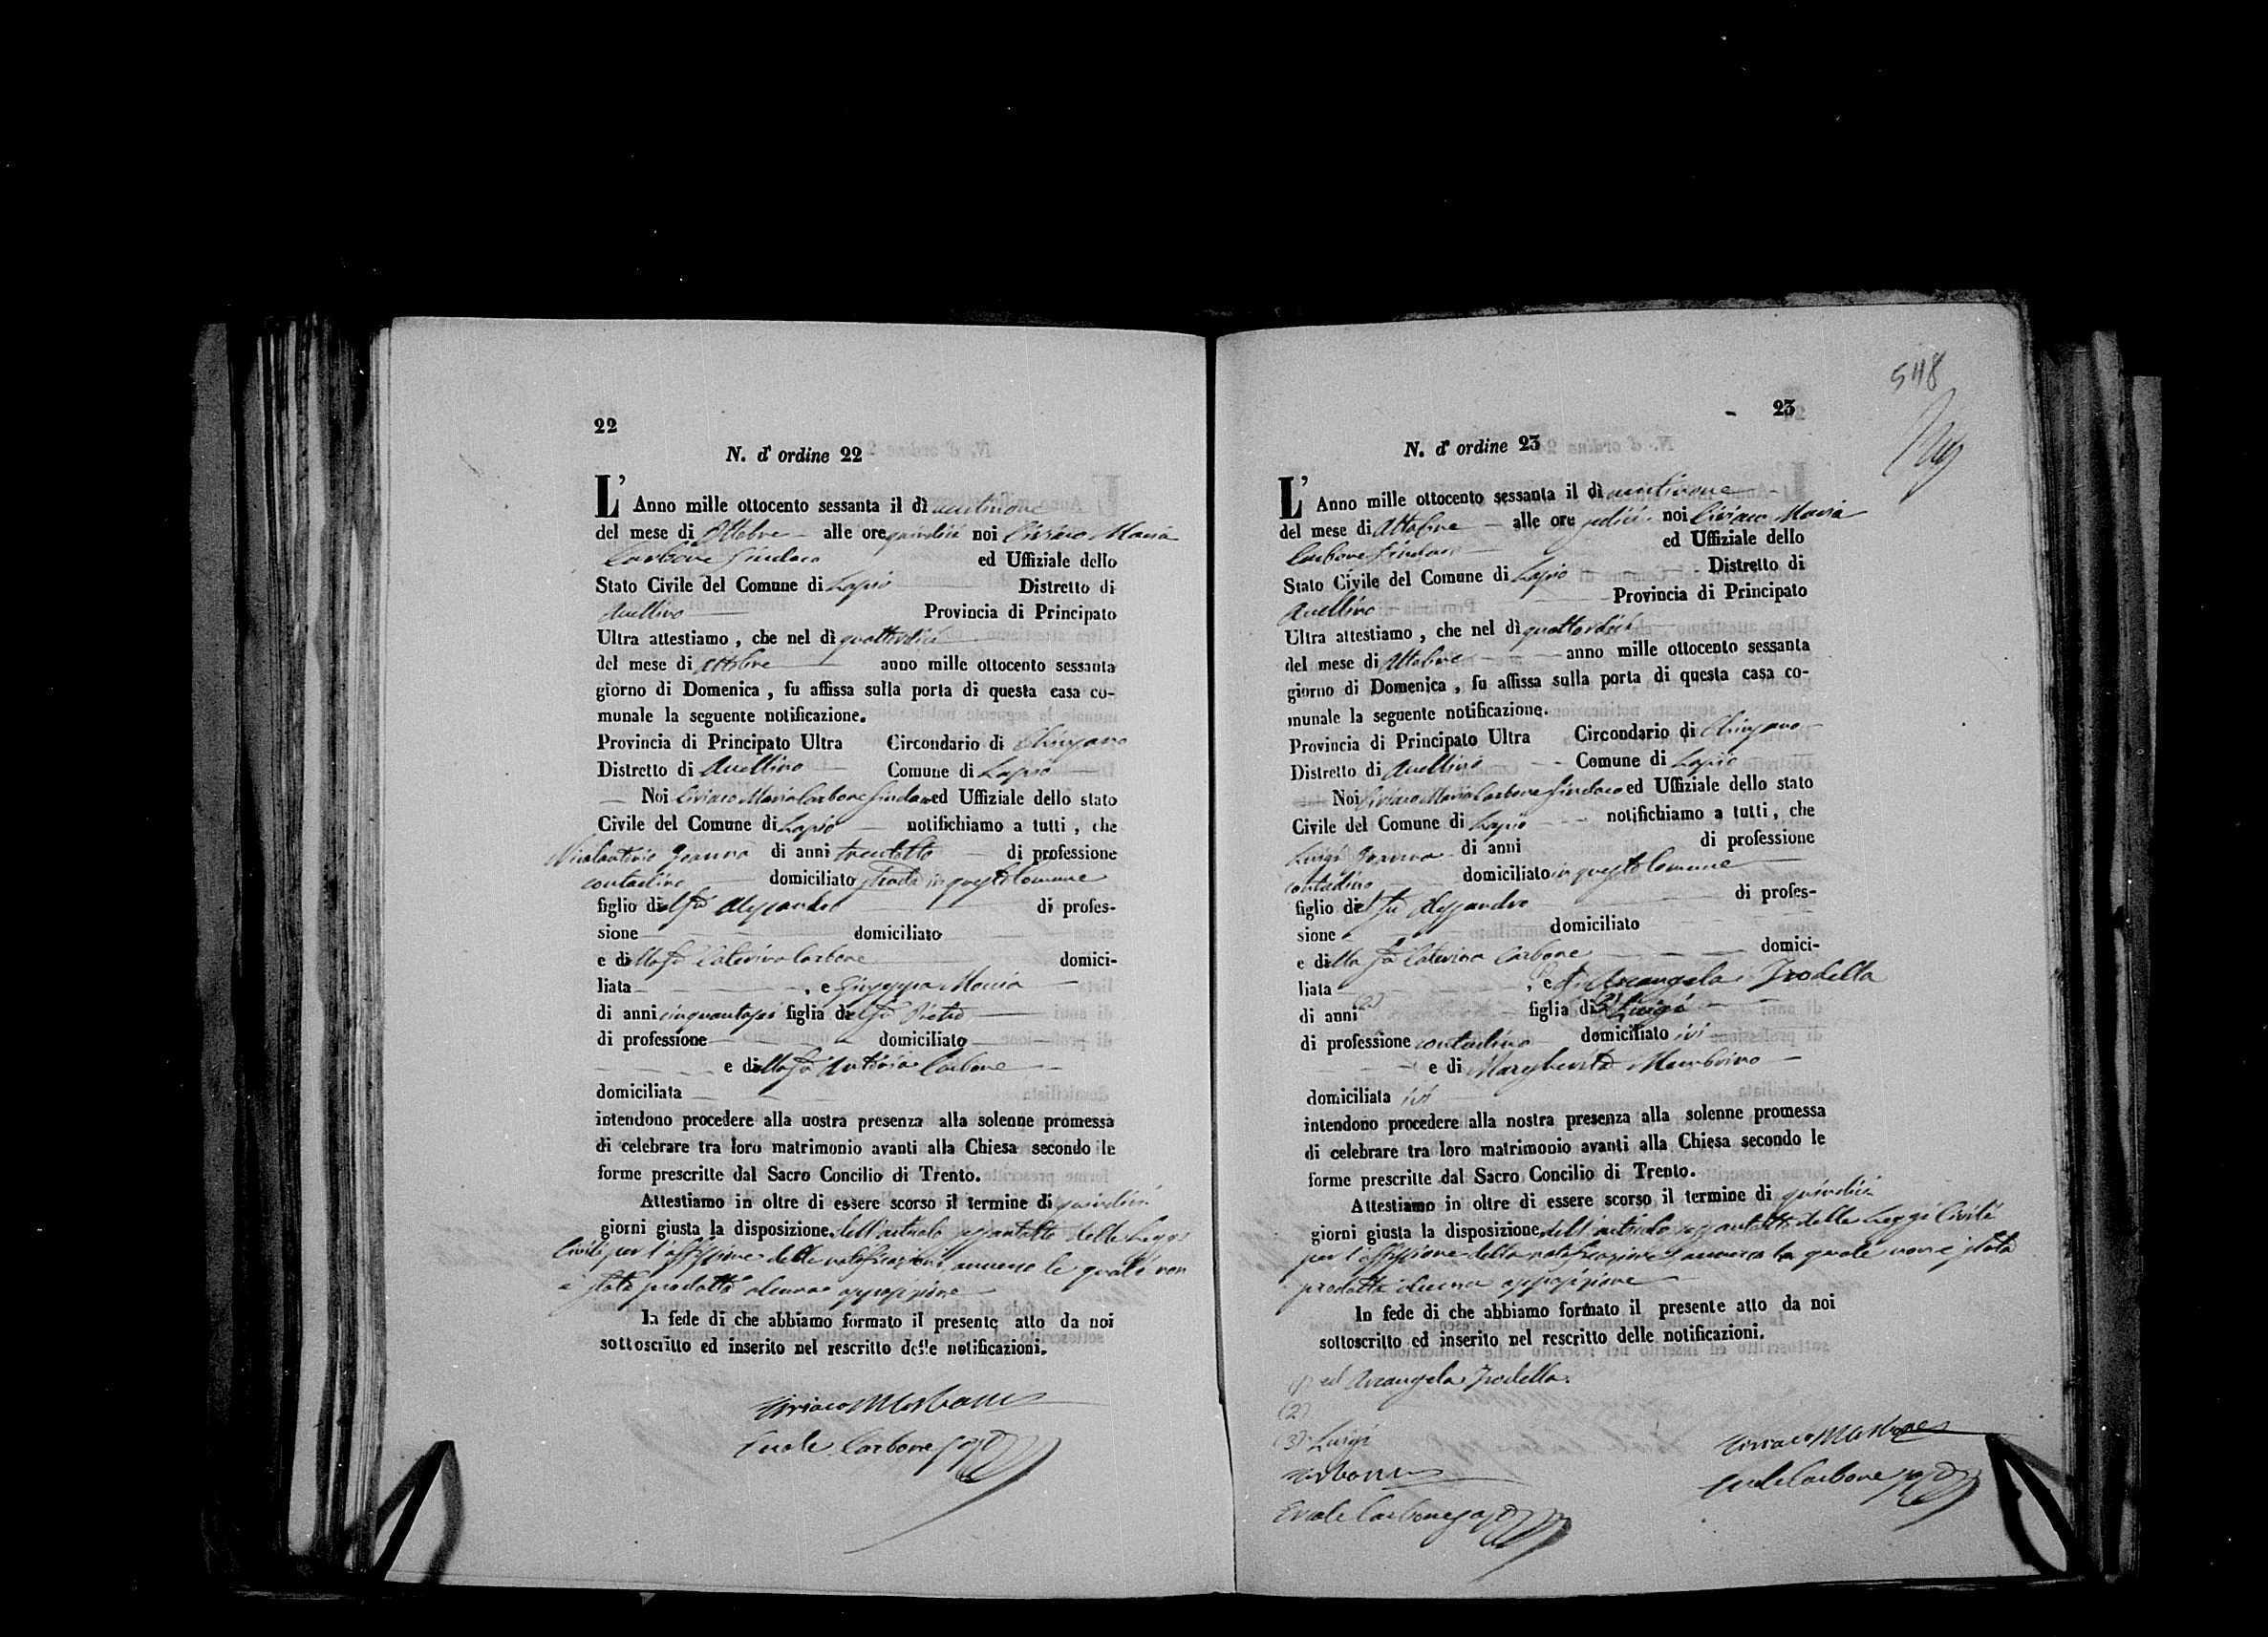 22
N. d' ordine 22
L' Anno mille ottocento sessanta il dì ventinove
del mese di Ottobre alle ore quindici noi Ciriaco Maria
Carbone Sindaco ed Uffiziale dello
Stato Civile del Comune di Lapio Distretto di
Avellino Provincia di Principato
Ultra attestiamo , che nel dì quattordici
del mese di Ottobre anno mille ottocento sessanta
giorno di Domenica , fu affissa sulla porta di questa casa co-
munale la seguente notificazione.
Provincia di Principato Ultra Circondario di Chiusano
Distretto di Avellino Comune di Lapio
Noi Ciriaco Maria Carbone Sindaco ed Uffiziale dello stato
Civile del Comune di Lapio notifichiamo a tutti , che
Nicolantonio di anni trentotto di professione
contadino domiciliato strada in questo Comune
figlio del fu Alessandro di profes-
sione domiciliato
e della fu Caterina Carbone domici-
liata , e Giuseppa
di anni figlia del fu Pietro
di professione domiciliato
e della fu Antonia Carbone
domiciliata
intendono procedere alla nostra presenza alla solenne promessa
di celebrare tra loro matrimonio avanti alla Chiesa secondo le
forme prescritte dal Sacro Concilio di Trento.
Attestiamo in oltre di essere scorso il termine di quindici
giorni giusta la disposizione dell'articolo sessantotto delle Leggi
Civili per l'affissione delle notificazioni le quali non
è stata prodotta alcuna opposizione
In fede di che abbiamo formato il presente atto da noi
sottoscritto ed inserito nel rescritto delle notificazioni.
Ciriaco M Carbone
Carbone
548
23
N. d' ordine 23
L' Anno mille ottocento sessanta il dì ventinove
del mese di Ottobre alle ore sedici noi Ciriaco Maria
Carbone Sindaco ed Uffiziale dello
Stato Civile del Comune di Lapio Distretto di
Avellino Provincia di Principato
Ultra attestiamo , che nel dì quattordici
del mese di Ottobre anno mille ottocento sessanta
giorno di Domenica , fu affissa sulla porta di questa casa co-
munale la seguente notificazione.
Provincia di Principato Ultra Circondario di Chiusano
Distretto di Avellino Comune di Lapio
Noi Ciriaco Maria Carbone Sindaco ed Uffiziale dello stato
Civile del Comune di Lapio notifichiamo a tutti , che
Luigi di anni di professione
contadino domiciliato in questo Comune
figlio del fu Alessandro di profes-
sione domiciliato
e della fu Caterina Carbone domici-
liata , e Arcangela Trodella
di anni (2) figlia di (3) Luigi
di professione contadino domiciliato ivi
e di Margherita Mambrino
domiciliata ivi
intendono procedere alla nostra presenza alla solenne promessa
di celebrare tra loro matrimonio avanti alla Chiesa secondo le
forme prescritte dal Sacro Concilio di Trento.
Attestiamo in oltre di essere scorso il termine di quindici
giorni giusta la disposizione dell'articolo sessantotto delle Leggi Civili
per l'affissione della notificazione la quale non è stata
prodotta alcuna opposizione
In fede di che abbiamo formato il presente atto da noi
sottoscritto ed inserito nel rescritto delle notificazioni.
(1) ed Arcangela Trodella.
(2)
(3) Luigi
Carbone
Carbone
Ciriaco M Carbone
Carbone